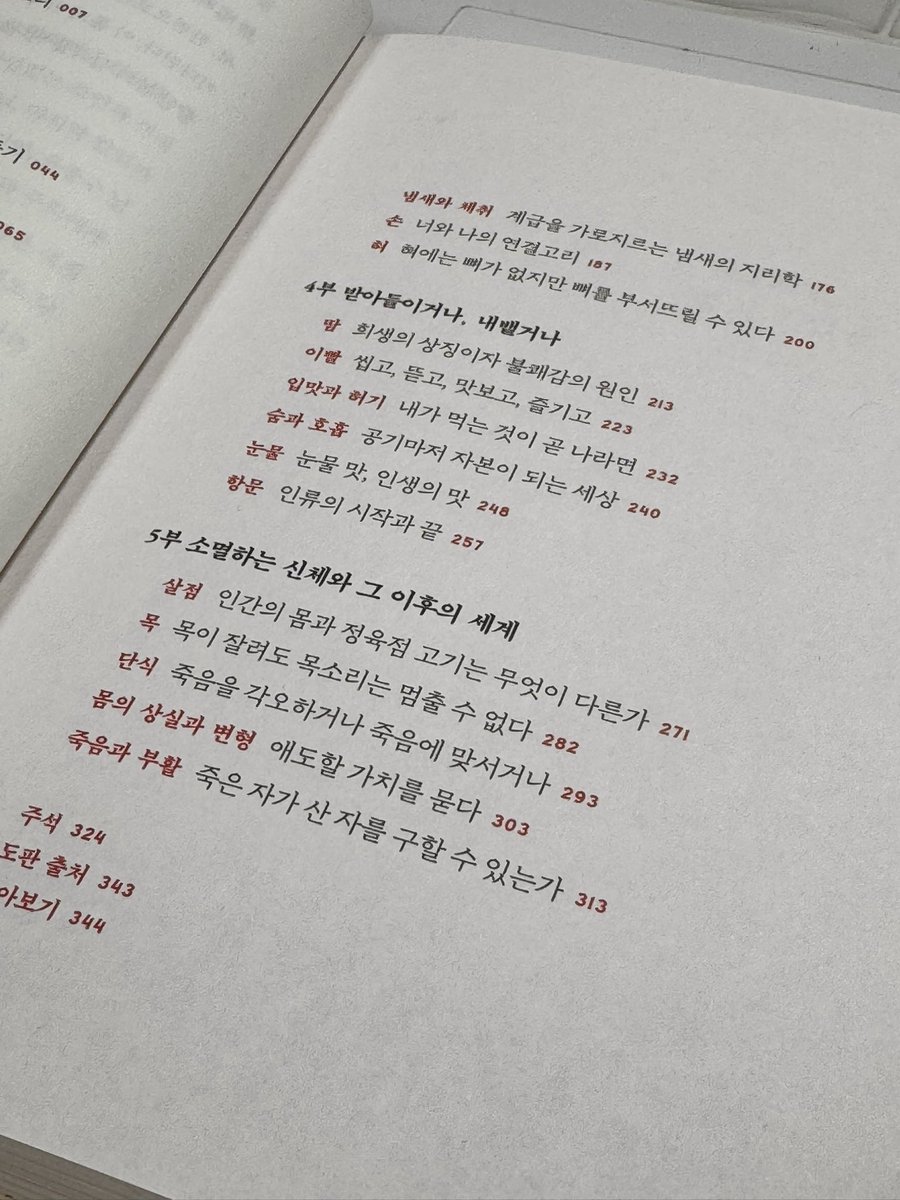 007
044
065
냄새와 체취 계급을 가로지르는 냄새의 지리학 176
손 너와 나의 연결고리 187
혀 혀에는 뼈가 없지만 뼈를 부서뜨릴 수 있다 200
4부 받아들이거나, 내뱉거나
땀 희생의 상징이자 불쾌감의 원인 213
이빨 씹고, 뜯고, 맛보고, 즐기고 223
입맛과 허기 내가 먹는 것이 곧 나라면 232
숨과 호흡 공기마저 자본이 되는 세상 240
눈물 눈물 맛, 인생의 맛 248
항문 인류의 시작과 끝 257
5부 소멸하는 신체와 그 이후의 세계
살점 인간의 몸과 정육점 고기는 무엇이 다른가 271
목 목이 잘려도 목소리는 멈출 수 없다 282
단식 죽음을 각오하거나 죽음에 맞서거나 293
몸의 상실과 변형 애도할 가치를 묻다 303
죽음과 부활 죽은 자가 산 자를 구할 수 있는가 313
주석 324
도판 출처 343
아보기 344